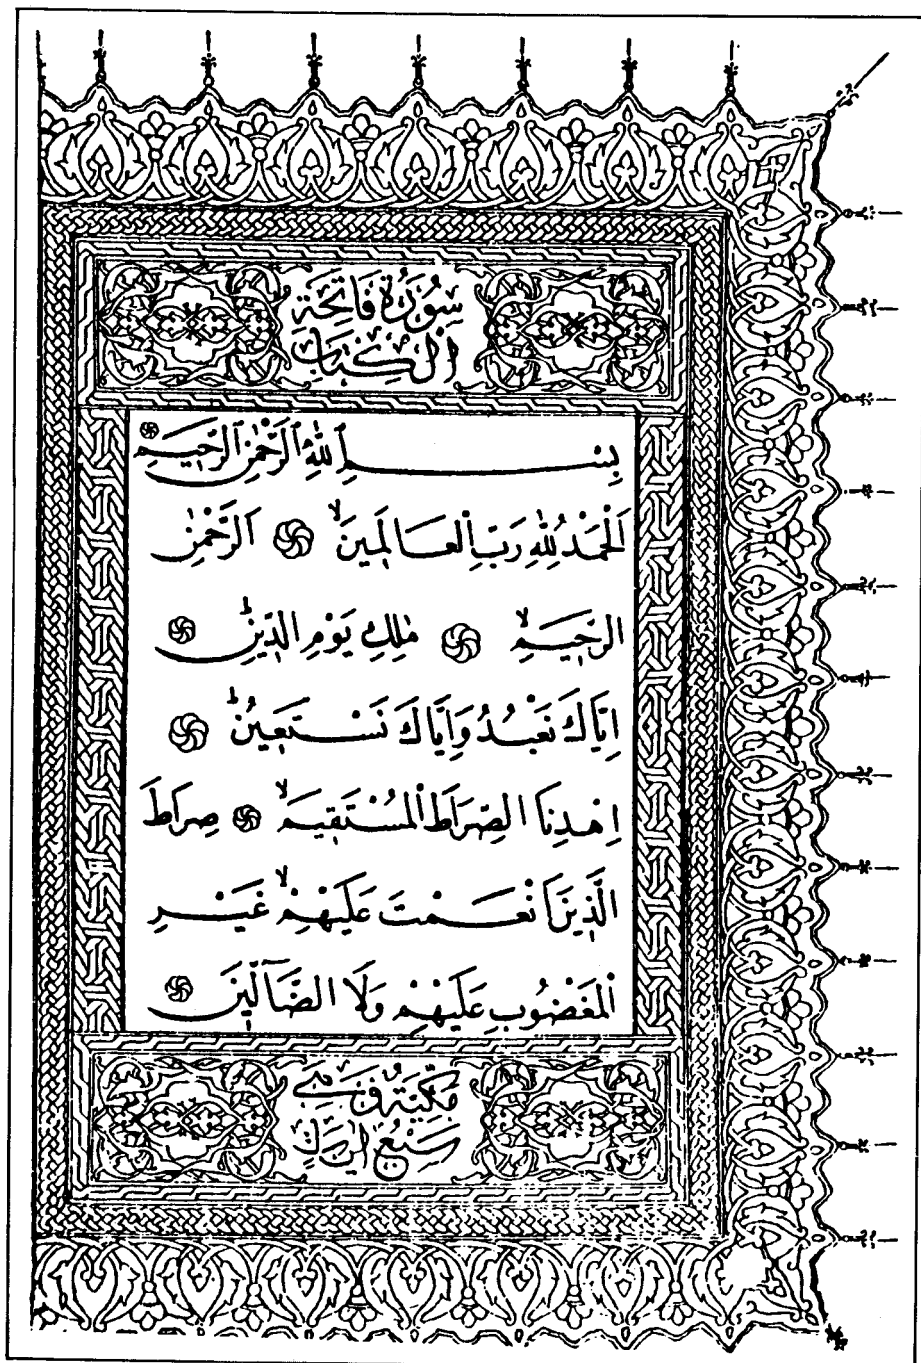 سُورَةُ فَاتِحَةِ
الْكِتَابِ
بِسْمِ اللهِ الرَّحْمٰنِ الرَّحِيمِ
اَلْحَمْدُ لِلّٰهِ رَبِّ الْعَالَمِينَۙ ۞ اَلرَّحْمٰنِ
الرَّحِيمِۙ ۞ مٰلِكِ يَوْمِ الدِّينِۜ ۞
اِيَّاكَ نَعْبُدُ وَاِيَّاكَ نَسْتَعِينُۜ ۞
اِهْدِنَا الصِّرَاطَ الْمُسْتَقِيمَۙ ۞ صِرَاطَ
الَّذِينَ اَنْعَمْتَ عَلَيْهِمْۙ غَيْرِ
الْمَغْضُوبِ عَلَيْهِمْ وَلَا الضَّٓالِّينَ ۞
مَكِّيَّةٌ وَهِيَ
سَبْعُ اٰيَاتٍ